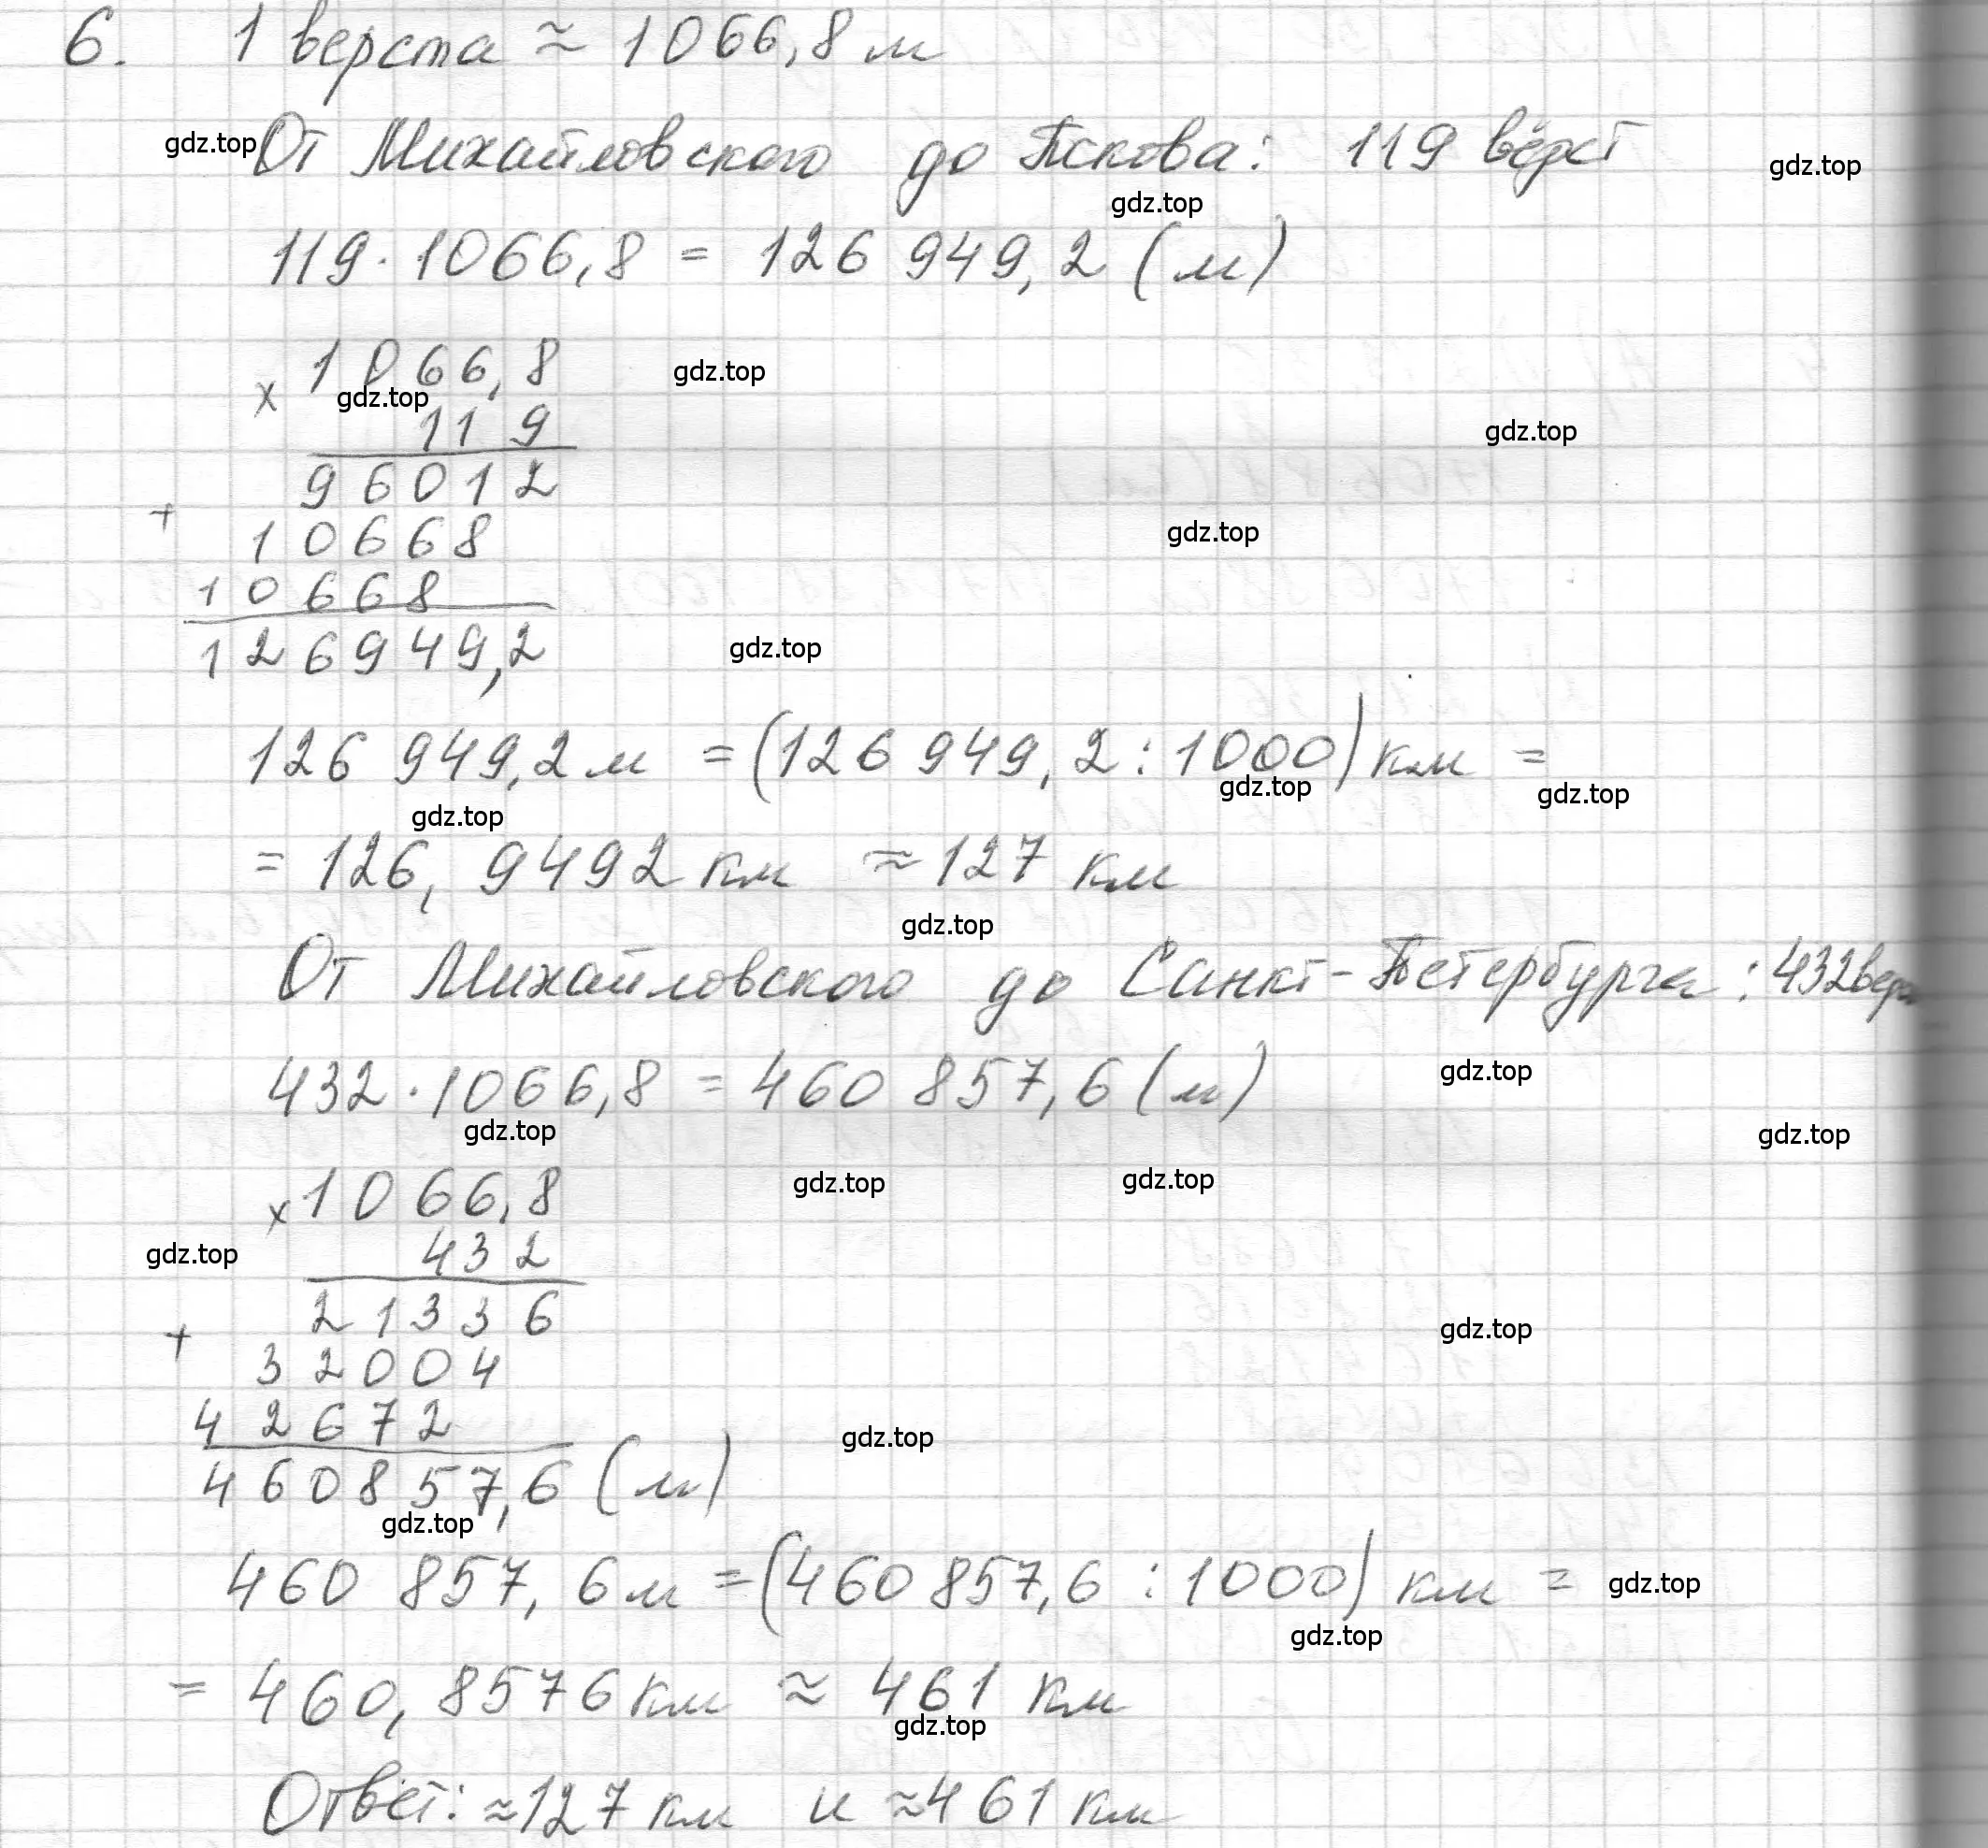 6. 1 верста ≈ 1066,8 м
gdz.top От Михайловского до Пскова: 119 вёрст gdz.top
gdz.top
119 · 1066,8 = 126 949,2 (м)
× 1066,8 gdz.top
gdz.top
119 gdz.top
96012
+
10668 gdz.top
10668
126949,2 gdz.top
126 949,2 м = (126 949,2 : 1000) км =
gdz.top gdz.top gdz.top
= 126,9492 км ≈ 127 км
gdz.top
От Михайловского до Санкт-Петербурга: 432
432 · 1066,8 = 460 857,6 (м) gdz.top
gdz.top gdz.top
× 1066,8 gdz.top gdz.top
gdz.top 432
21336 gdz.top
+
32004
42672 gdz.top
460857,6 (м)
gdz.top
460 857,6 м = (460 857,6 : 1000) км = gdz.top
gdz.top
= 460,8576 км ≈ 461 км
gdz.top
Ответ: ≈127 км и ≈461 км